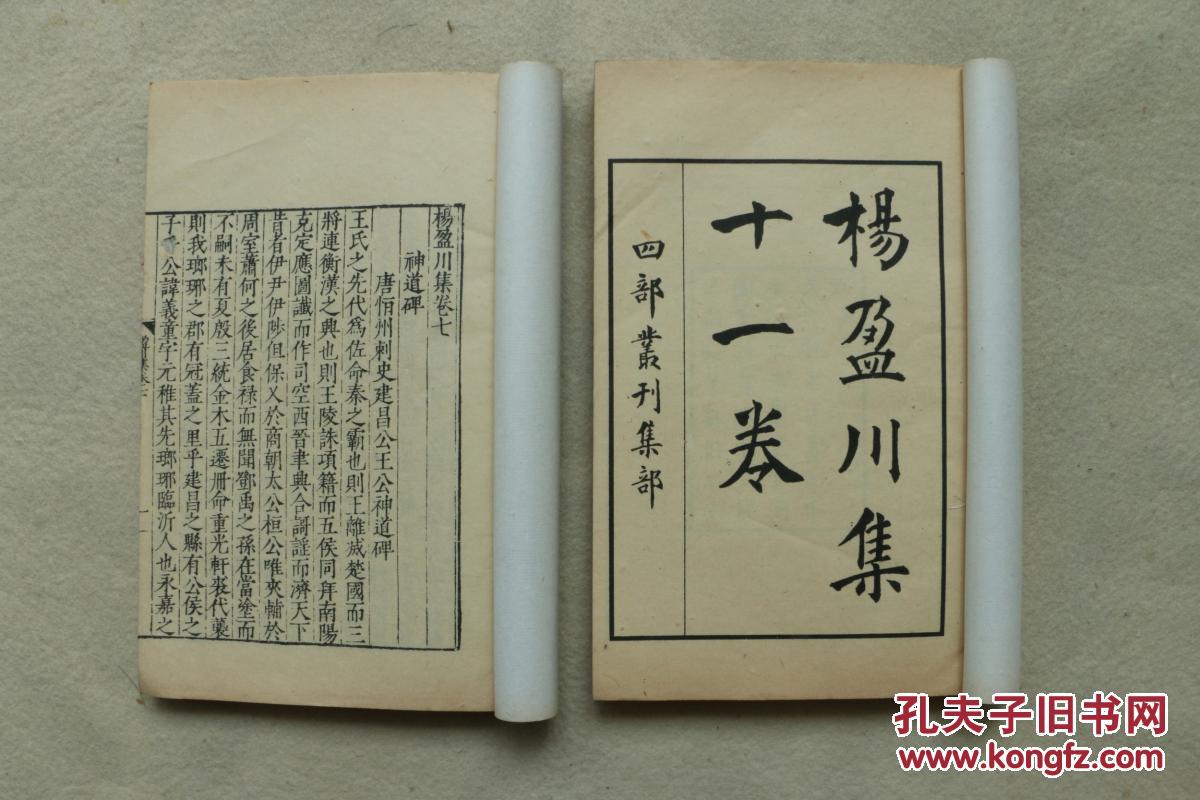 楊盈川集
十一卷
四部叢刊集部
楊盈川集卷七
神道碑
唐恒州刺史建昌公王公神道碑
王氏之先代爲佐命秦之霸也則王離滅楚國而三
將連衡漢之興也則王陵誅項籍而五侯同拜南陽
克定應圖讖而作司空西晉聿興合謌謡而濟天下
昔者伊尹伊陟俱保乂於商朝太公桓公唯夾輔於
周室蕭何之後居食禄而無聞鄧禹之孫在當塗而
不嗣未有夏殷三統金木五遷冊命重光軒裘代襲
則我瑯琊之郡有冠蓋之里乎建昌之縣有公侯之
子乎公諱義童字元稚其先瑯琊臨沂人也永嘉之
孔夫子旧书网
www.kongfz.com